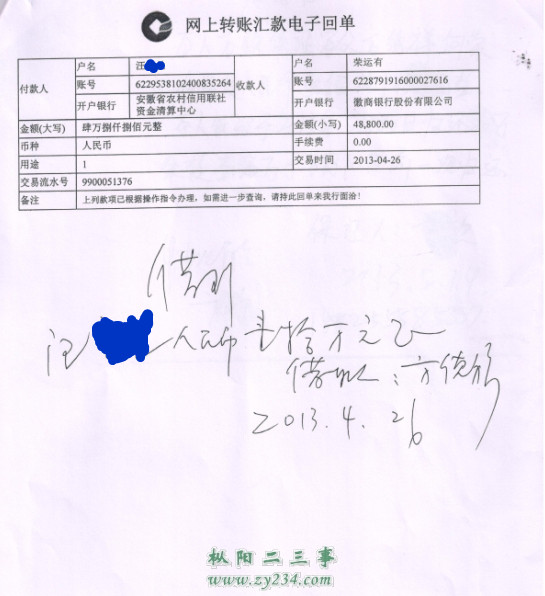 网上转账汇款电子回单
付款人 户名 汪 收款人 户名 荣运有
账号 6229538102400835264 账号 6228791916000027616
开户银行 安徽省农村信用联社资金清算中心 开户银行 徽商银行股份有限公司
金额(大写) 肆万捌仟捌佰元整 金额(小写) 48,800.00
币种 人民币 手续费 0.00
用途 1 交易时间 2013-04-26
交易流水号 9900051376
备注 上列款项已根据操作指令办理，如需进一步查询，请持此回单来我行面洽！
借到
汪 人民币 拾万元正
借款人：方
2013.4.26
枞阳二三事
www.zy234.com